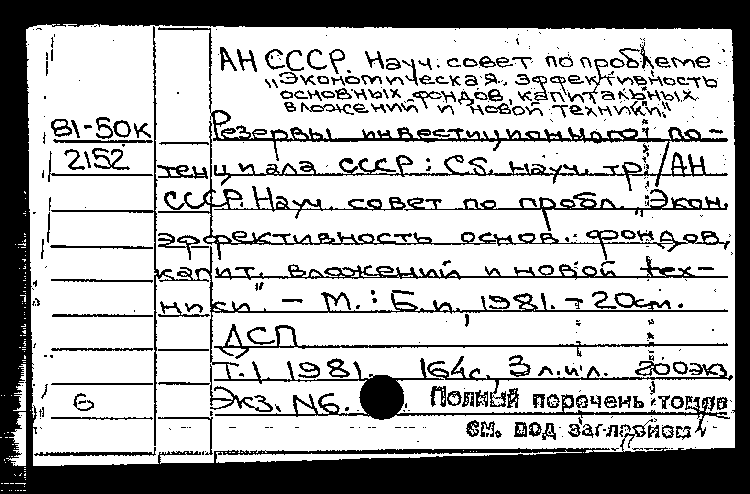 АН СССР. Науч. совет по проблеме
„Экономическая эффективность
основных фондов, капитальных
вложений и новой техники."
81-50к Резервы инвестиционного по-
2152 тенциала СССР: Сб. науч. тр./АН
СССР. Науч. совет по пробл. „Экон.
эффективность основ. фондов,
капит. вложений и новой тех-
ники". – М.: Б.и., 1981. – 20см.
ДСП
Т.1 1981. 164с., 3 л.ил. 200экз.
6 Экз. N6. Полный перечень томов
см. под заглавием